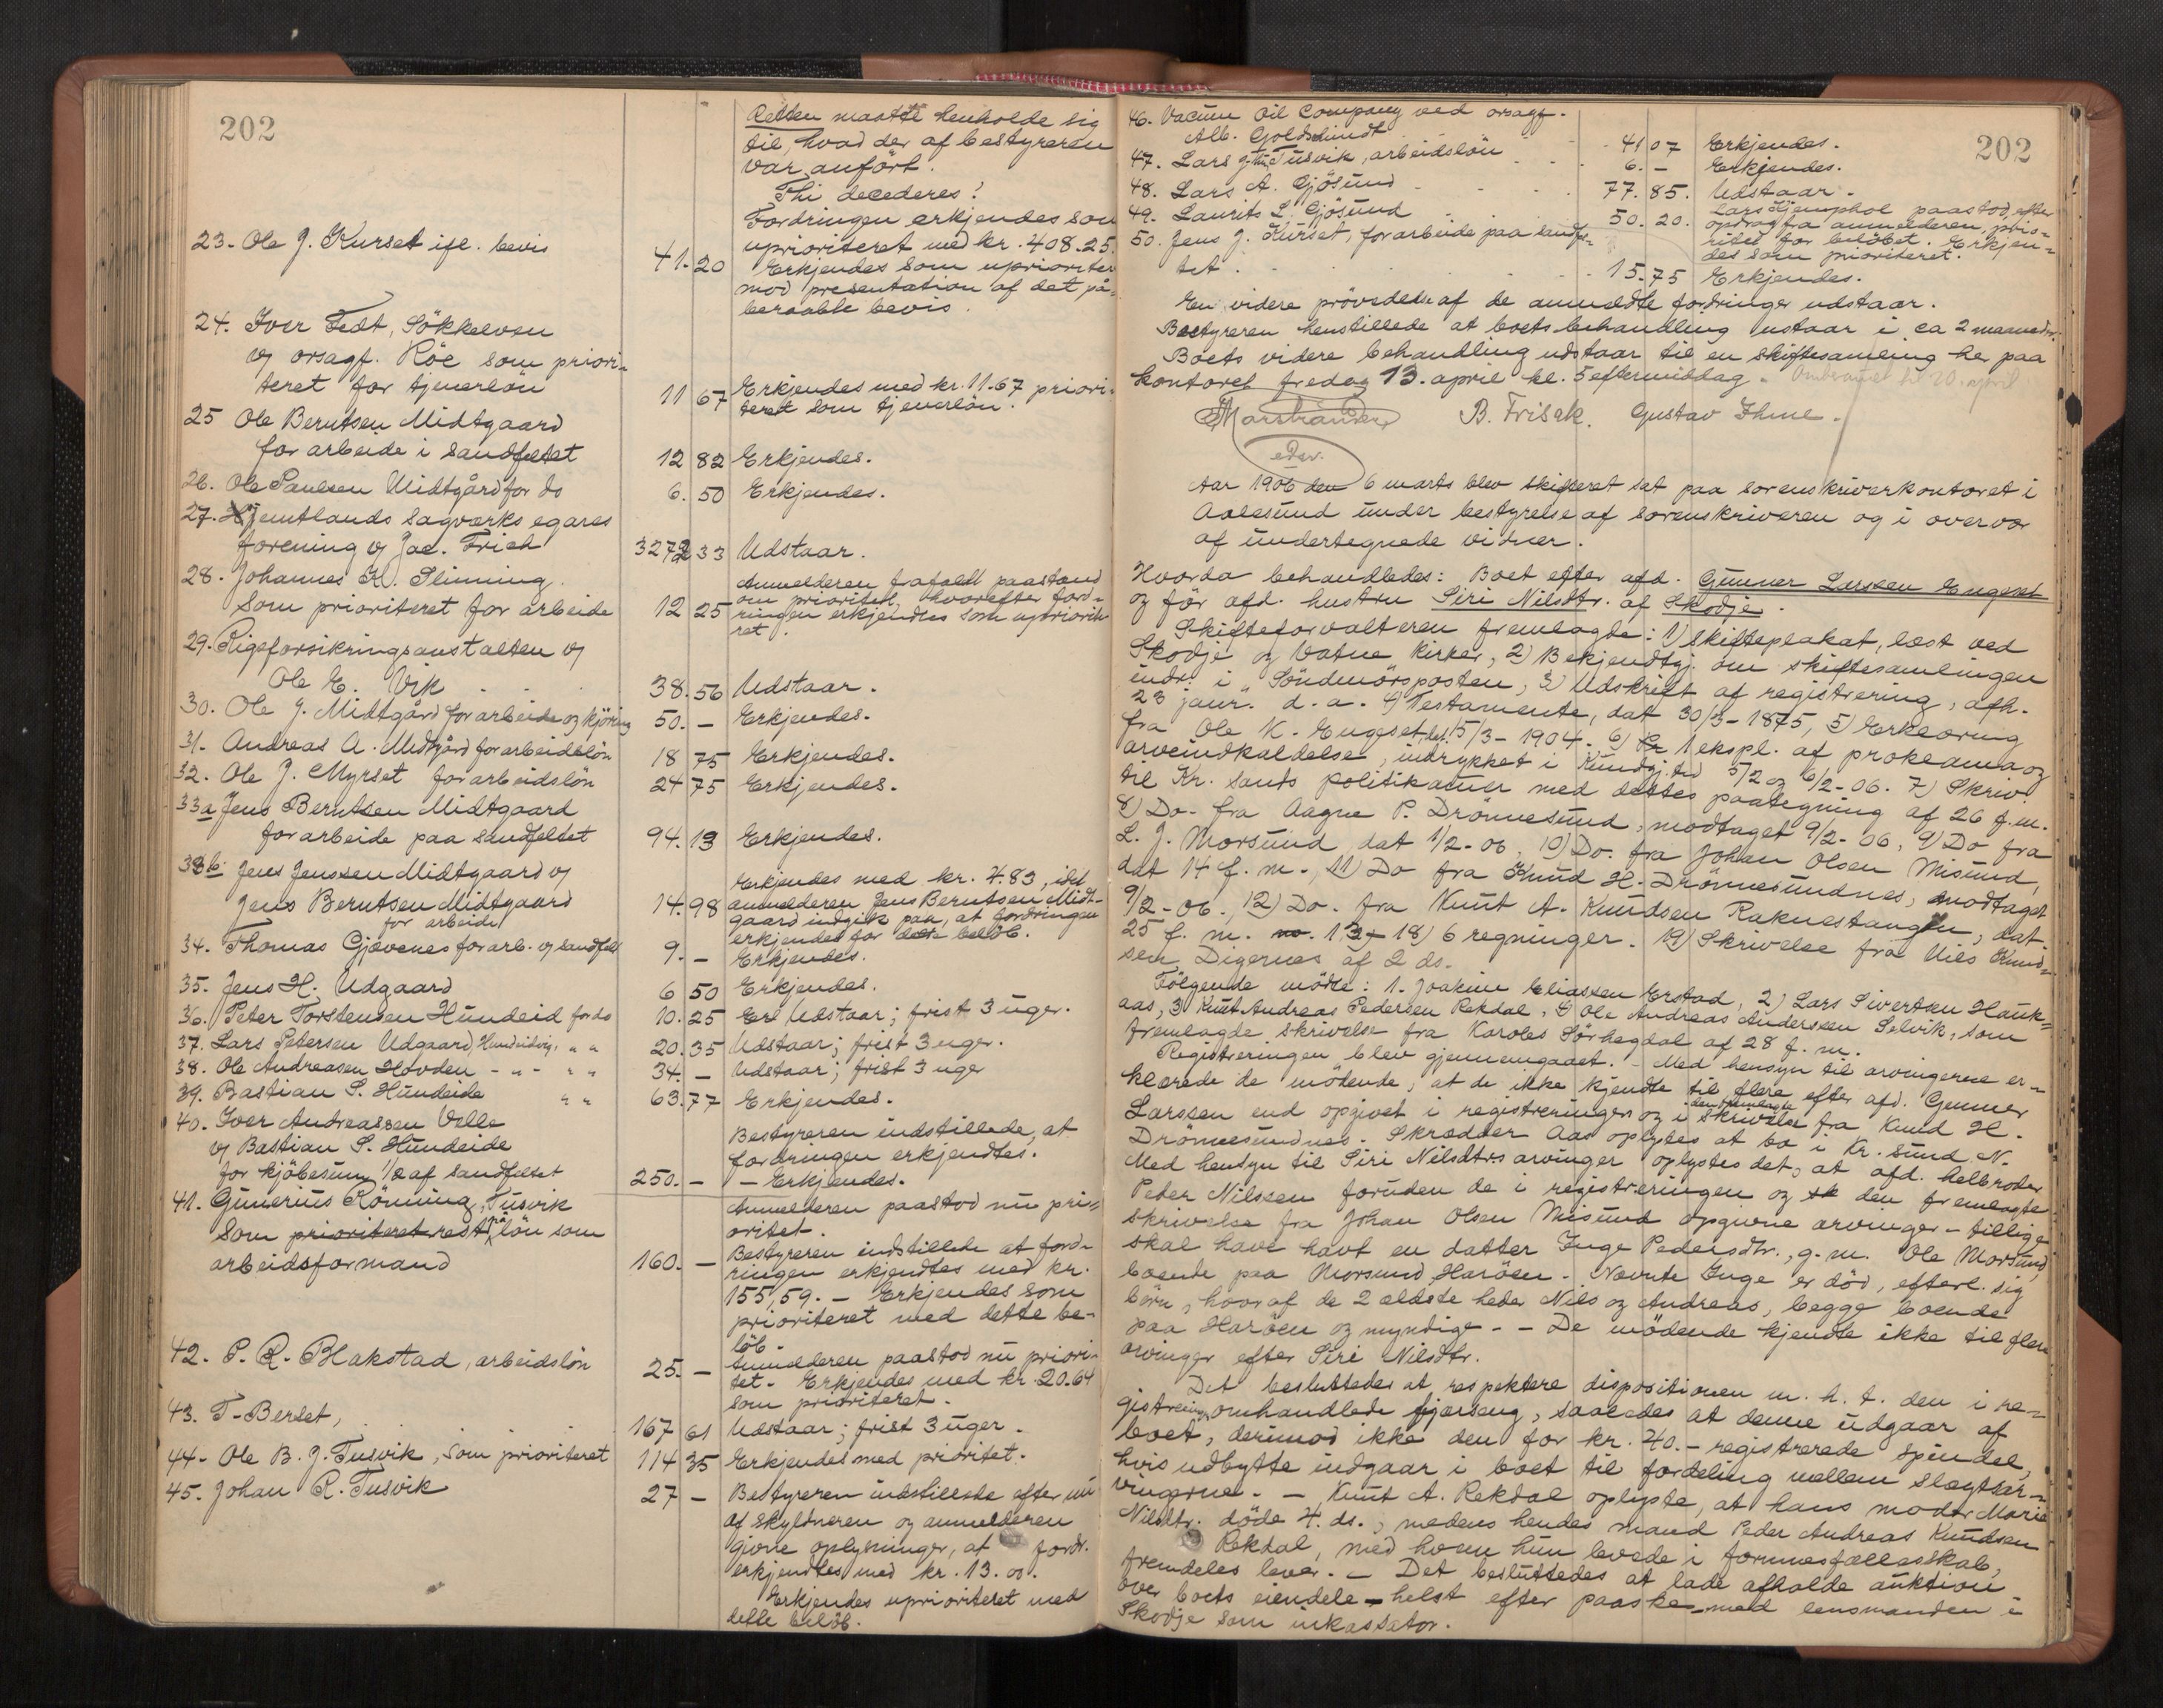 202
Retten maatte henholde sig
til, hvad der af bestyreren
var anført.
Thi decederes!
Fordringen erkjendes som
uprioriteret med kr. 408.25.
23. Ole J. Kurset ifl. bevis 41.20 Erkjendes som uprioriteret
mod presentation af det på-
beraabte bevis.
24. Iver Fedt, Sökkelven
v/ orsagf. Röe som priori-
teret for tjenerlön 11 67 Erkjendes med kr. 11.67 priori-
teret som tjenerlön.
25 Ole Berntsen Midtgaard
for arbeide i sandfeltet 12 82 Erkjendes.
26. Ole Paulsen Midtgård for do 6. 50 Erkjendes.
27. Jemtlands sagværks egares
forening v/ Jac. Frich 3272 33 Udstaar.
28. Johannes K. Slinning.
som prioriteret for arbeide 12 25 Anmelderen frafaldt paastand
om prioritet, hvorefter ford-
ringen erkjendtes som upriorite-
ret.
29. Rigsforsikringsanstalten v/
Ole E. Vik 38.56 Udstaar.
30. Ole J. Midtgård for arbeide og kjöring 50. - Erkjendes.
31. Andreas A. Midtgård for arbeidslön 18 75 Erkjendes.
32. Ole J. Myrset for arbeidslön 24 75 Erkjendes.
33a Jens Berntsen Midtgaard
for arbeide paa sandfeltet 94. 13 Erkjendes.
33b. Jens Jenssen Midtgaard v/
Jens Berntsen Midtgaard
for arbeide 14.98 Erkjendes med kr. 4.83, idet
anmelderen Jens Berntsen Midt-
gaard indgik paa, at fordringen
erkjendes for dette belöb.
34. Thomas Gjævenes for arb. v/ sandfelt 9. - Erkjendes.
35. Jens H. Udgaard 6 50 Erkjendes.
36. Peter Torstensen Hundeid for do 10.25 Erk Udstaar; frist 3 uger.
37. Lars Petersen Udgaard, Hundeidvig, " " 20.35 Udstaar; frist 3 uger.
38. Ole Andreasen Hovden - " - " " 34. - Udstaar; frist 3 uger
39. Bastian S. Hundeide " " 63.77 Erkjendes.
40. Iver Andreassen Velle
v/ Bastian S. Hundeide
for kjöbesum 1/2 af sandfeltet 250. - Bestyreren indstillede, at
fordringen erkjendtes.
- Erkjendes.
41. Gunerius Ronning, Tusvik
som prioriteret rest lön som
arbeidsformand 160. - Anmelderen paastod nu pri-
oritet.
Bestyreren indstillede at ford-
ringen erkjendtes med kr.
155,59. - Erkjendes som
prioriteret med dette be-
löb.
42. P. R. Blakstad, arbeidslön 25. - Anmelderen paastod nu priori-
tet. Erkjendes med kr. 20.64
som prioriteret.
43. T. Berset, 167 61 Udstaar; frist 3 uger.
44. Ole B. J. Tusvik, som prioriteret 114 35 Erkjendes med prioritet.
45. Johan R. Tusvik 27 - Bestyreren indstillede efter nu
af skyldneren og anmelderen
givne oplysninger, at fordr.
erkjendtes med kr. 13.00.
Erkjendes uprioriteret med
dette belöb.
202
46. Vacuum Oil Company ved orsagf.
Alb. Goldschmidt 41 07 Erkjendes.
47. Lars Tusvik, arbeidslön 6. - Erkjendes.
48. Lars A. Gjösund 77.85. Udstaar.
49. Laurits L. Gjösund 50.20. Lars Hjemphol paastod, efter
opdrag fra anmelderen, prio-
ritet for belöbet. Erkjen-
des som prioriteret.
50. Jens J. Kurset, for arbeide paa sandfel-
tet. 15.75 Erkjendes.
En videre prövedelse af de anmeldte fordringer udstaar.
Bestyreren henstillede at boets behandling ustaar i ca 2 maaneder.
Boets videre behandling udstaar til en skiftesamling her paa
kontoret fredag 13. april kl. 5 eftermiddag. Omberammet til 20. april
Marstrander B. Frisak. Gustav Ihme.
edsv.
Aar 1906 den 6 marts blev skifteret sat paa sorenskriverkontoret i
Aalesund under bestyrelse af sorenskriveren og i overvær
af undertegnede vidner.
Hvorda behandledes: Boet efter afd. Gunner Larssen Engeset
og för afd. hustru Siri Nilsdtr. af Skodje.
Skifteforvalteren fremlagde: 1) skifteplakat, læst ved
Skodje og Vatne kirker, 2) Bekjendtgj. om skiftesamlingen
indr. i "Söndmörsposten", 3) Udskrift af registrering, afh.
23 janr. d. a. 4) Testamente, dat 30/3-1875, 5) Erklæring
fra Ole K. Engeset, dat 5/3-1904. 6) 1 ekspl. af proklama og
arveindkaldelse, indrykket i Kundgj. tid 5/2 og 6/2-06. 7) Skriv.
til Kr. sunds politikamer med dettes paategning af 26 f. m.
8) Do. fra Aagne P. Drönnesund, modtaget 9/2-06, 9) Do fra
L. J. Morsund, dat 1/2-06, 10) Do. fra Johan Olsen Misund,
dat 14 f. m., 11) Do fra Knud H. Drönnesundnes, modtaget
9/2-06, 12) Do. fra Knut A. Knudsen Raknestangen, dat.
25 f. m. no. 13-18) 6 regninger. 19) Skrivelse fra Nils Knud-
sen Digernes af 2 ds.
Fölgende mödte: 1. Joakim Eliassen Erstad, 2) Lars Sivertsen Hauk-
aas, 3 Knut Andreas Pedersen Rekdal, 4) Ole Andreas Anderssen Selvik, som
fremlagde skrivelse fra Karoles Sörhegdal af 28 f. m.
Registreringen blev gjennemgaaet. - Med hensyn til arvingerne er-
klærede de mödende, at de ikke kjendte til flere efter afd. Gunner
Larssen end opgivet i registreringen og i den fremlagte skrivelse fra Knud H.
Drönnesundnes. Skrædder Aas oplystes at bo i Kr. Sund N.
Med hensyn til Siri Nilsdtrs arvinger oplystes det, at afd. helbroder
Peder Nilssen foruden de i registreringen og sk den fremlagte
skrivelse fra Johan Olsen Misund opgivne arvinger - tillige
skal have havt en datter Inge Pedersdtr., g. m. Ole Morsund,
boende paa Morsund, Haröen. Nævnte Inge er död, efterl. sig
börn, hvoraf de 2 ældste heder Nils og Andreas, begge boende
paa Haröen og myndige. - De mödende kjendte ikke til flere
arvinger efter Siri Nilsdtr.
Det besluttedes at respektere dispositionen m. h. t. den i re-
gistreringen omhandlede fjærseng, saaledes at denne udgaar af
boet, derimod ikke den for kr. 40.- registrerede spindel,
hvis udbytte indgaar i boet til fordeling mellem slegtsar-
vingerne. - Knut A. Rekdal oplyste, at hans moder Marie
Nilsdtr. döde 4. ds., medens hendes mand Peder Andreas Knudsen
Rekdal, med hvem hun levede i formuesfællesskab,
fremdeles lever. - Det besluttedes at lade afholde auktion
over boets eiendele - helst efter paaske - med lensmanden i
Skodje som inkassator.